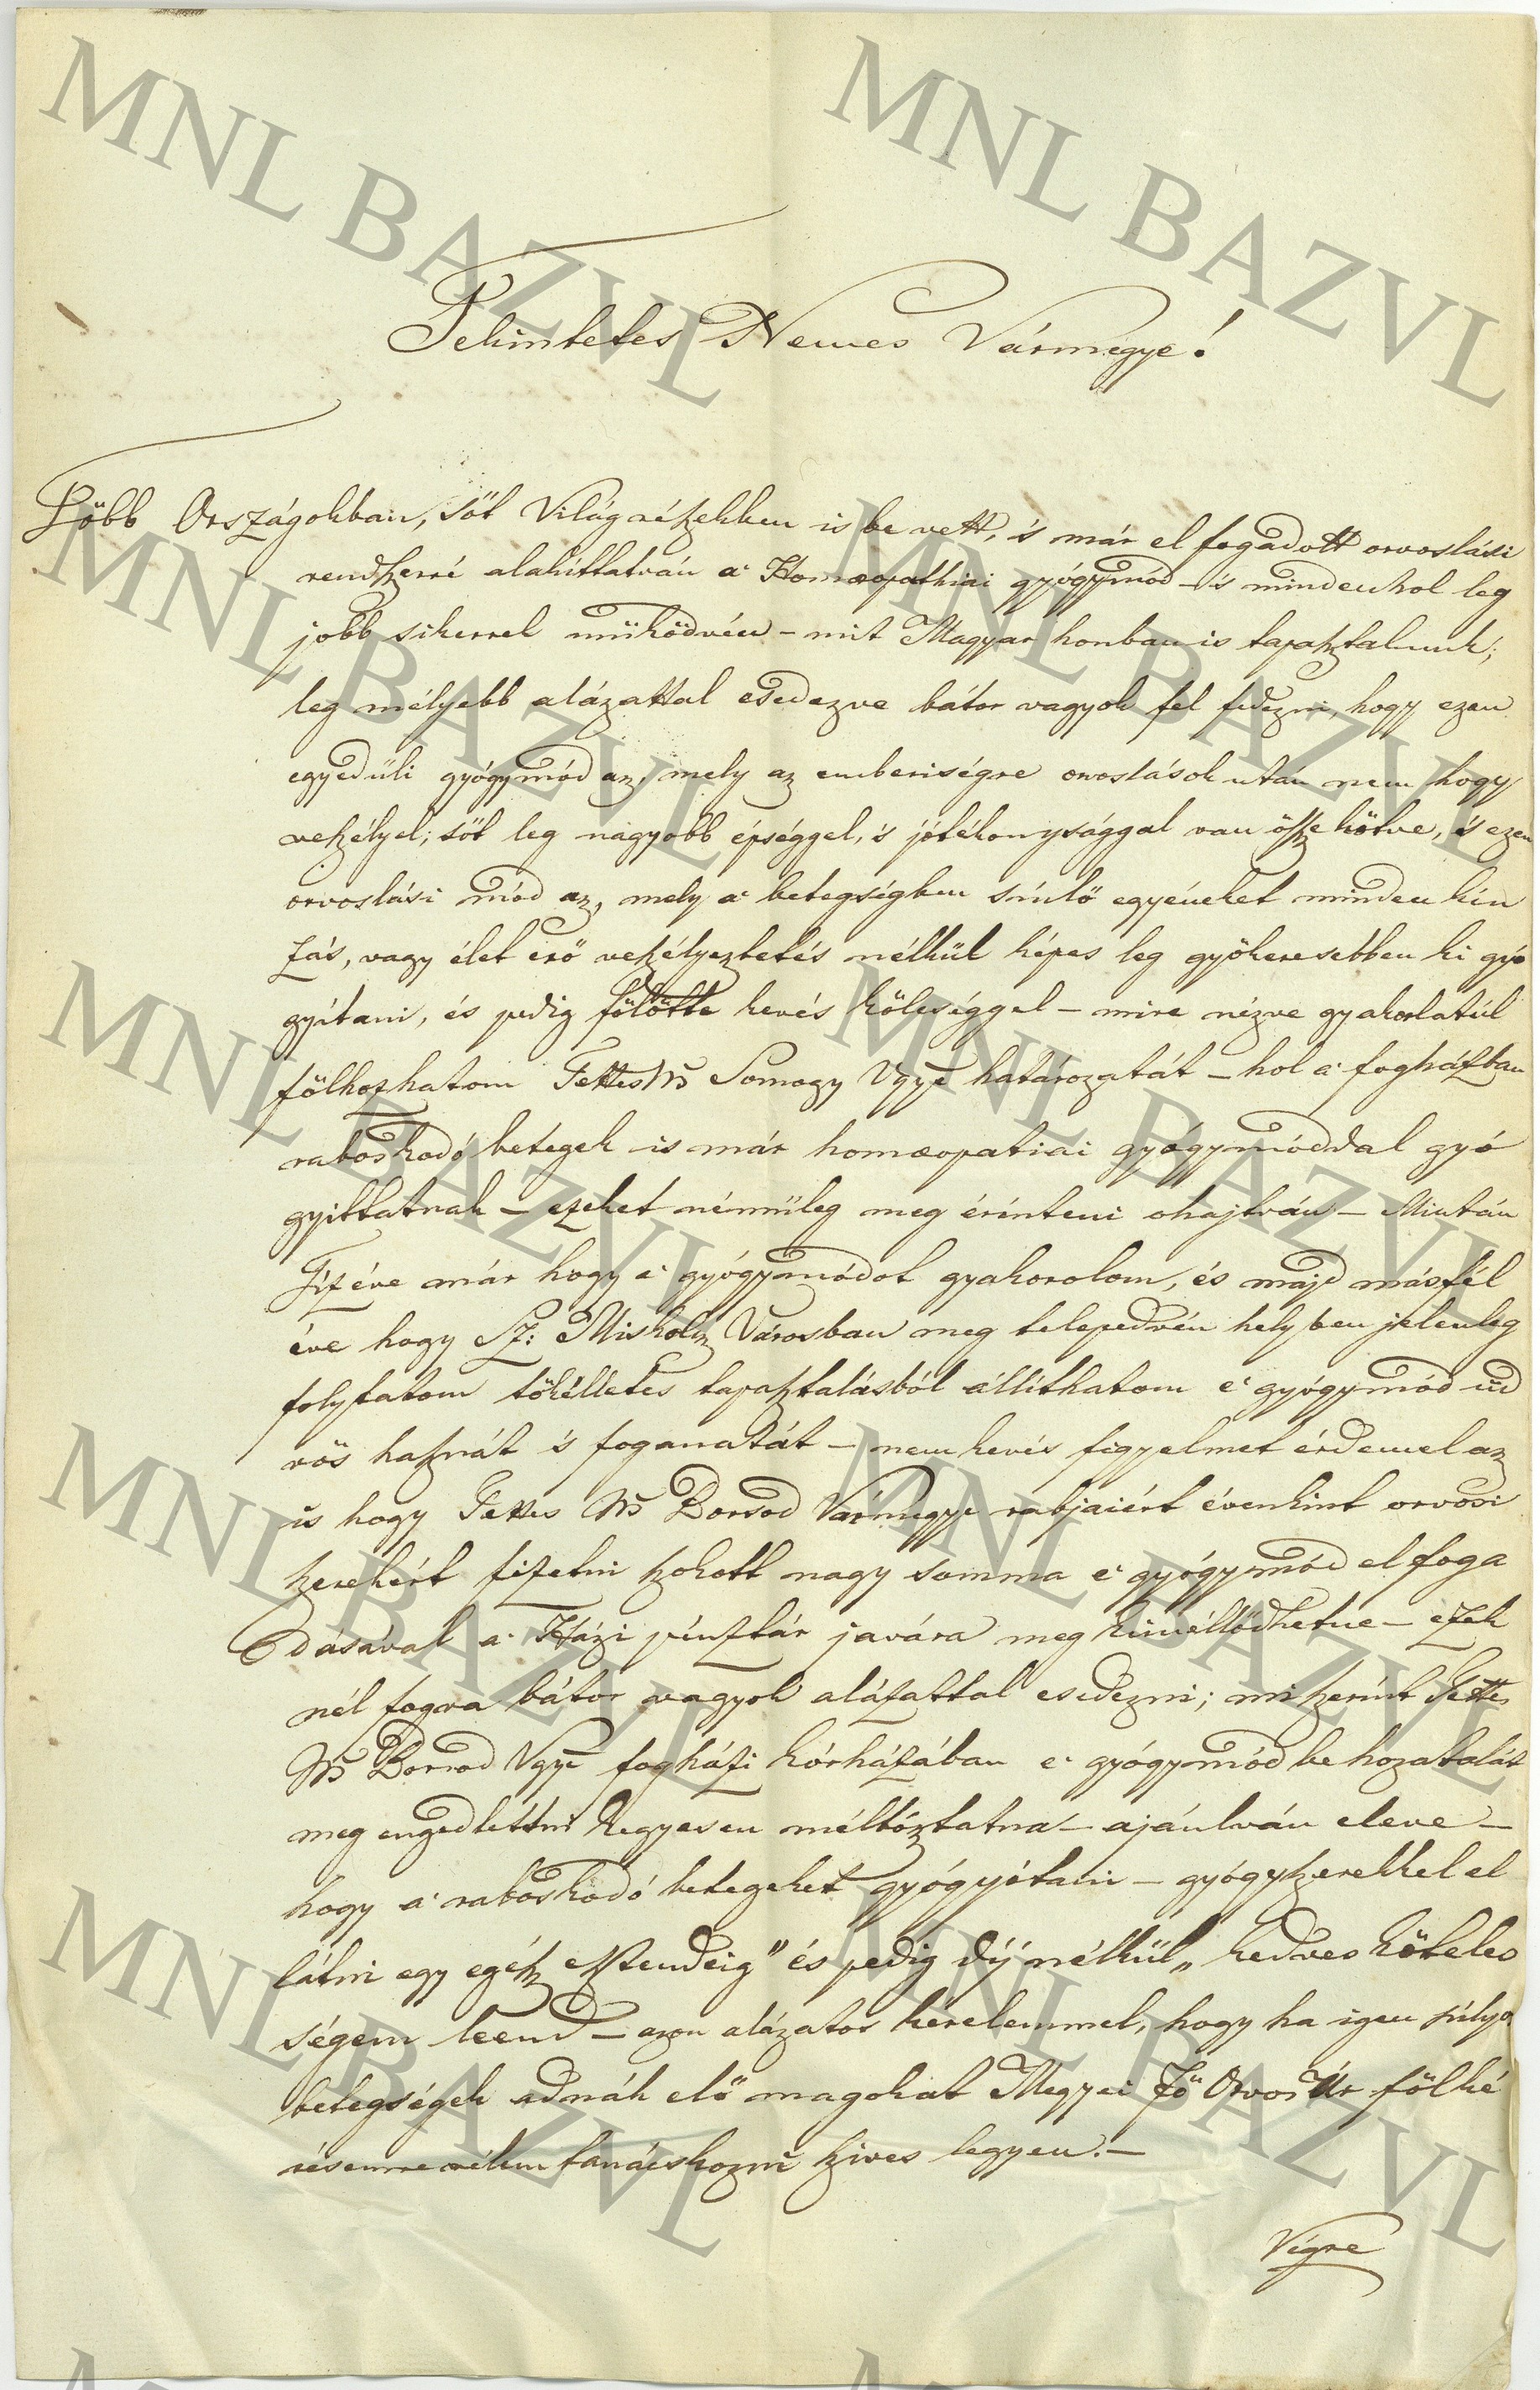 Tekintetes Nemes Vármegye!
Több Országokban, sőt Világrészekben is be vett, 's már el fogadott orvoslási
rendszerré alakíttatván a' Homœopathiai gyógymód – 's mindenhol leg
jobb sikerrel működvén – mit Magyar honban is tapasztalunk;
leg mélyebb alázattal esedezve bátor vagyok fel fedezni, hogy ezen
egyedűli gyógymód az, mely az emberiségre orvoslások után nem hogy
veszélyel; sőt leg nagyobb épséggel, 's jótékonysággal van össze kötve, és ezen
orvoslási mód az, mely a' betegségben sínlő egyéneket minden kín
zás, vagy élet erő veszélyeztetés nélkűl képes leg gyökeresebben ki gyó
gyítani, és pedig fölötte kevés költséggel – mire nézve gyakorlatúl
fölhozhatom Tettes Ns Somogy Vgye határozatát – hol a' fogházban
raboskodó betegek is már homœopatiai gyógymóddal gyó
gyittatnak – ezeket némüleg meg érinteni ohajtván – Miután
Tíz éve már hogy e' gyógymódot gyakorolom, és majd másfél
éve hogy Sz: Miskolcz Városban meg telepedvén helyben jelenleg
folytatom tökélletes tapasztalásból állíthatom e' gyógymód üd
vös hasznát 's foganatát – nem kevés figyelmet érdemel az
is hogy Tettes Ns Borsod Vármegye rabjaiért évenkint orvosi
szerekért fizetni szokott nagy summa e' gyógymód el foga
dásával a' Házi pénztár javára meg kiméllődhetne – ezek
nél fogva bátor vagyok alázattal esedezni; mi szerint Tettes
Ns Borsod Vgye fogházi kórházában e' gyógymód be hozatalát
meg engedtetni kegyesen méltóztatna – ajánlván eleve –
hogy a' raboskodó betegeket gyógyítani – gyógyszerekkel el
látni egy egész esztendeig" és pedig díj nélkül„ kedves köteles
ségem leend – azon alázatos kérelemmel, hogy ha igen súlyos
betegségek adnák elő magokat Megyei Fő Orvos Úr fölké
résemre velem tanácskozni szives legyen. –
Végre
MNL BAZVL
MNL BAZVL
MNL BAZVL
MNL BAZVL
MNL BAZVL
MNL BAZVL
MNL BAZVL
MNL BAZVL
MNL BAZVL
MNL BAZVL